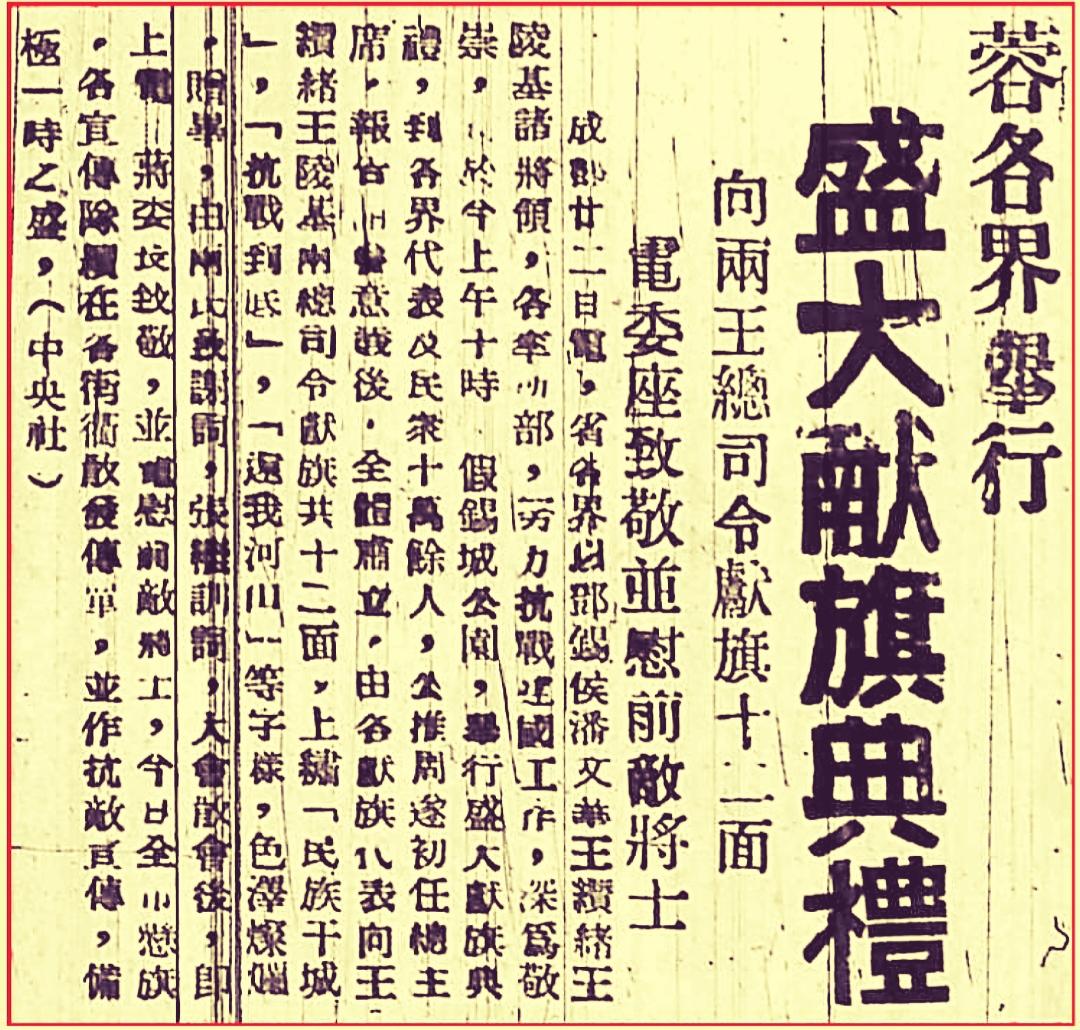 蓉各界舉行
盛大献旗典禮
向兩王總司令獻旗十二面
電委座致敬並慰前敵將士
成都廿二日電，省各界以鄧錫侯潘文華王纘緒王
陵基諸將領，各率川部，努力抗戰建國工作，深爲敬
崇，於今上午十時 假錫城公園，舉行盛大獻旗典
禮，到各界代表及民衆十萬餘人，公推周遂初任總主
席，報告意義後．全體肅立，由各獻旗代表向王
纘緒王陵基兩總司令獻旗共十二面，上繡「民族干城
」，「抗戰到底」，「還我河山」等字樣，色澤燦爛
，贈畢，由兩氏致謝詞，張繼訓詞，大會散會後，卽
上電 蔣委坟致敬，並電慰前敵將士，今日全川懸旗
，各宣傳隊續在各街衢散發傳單，並作抗敵宣傳，備
極一時之盛，（中央社）